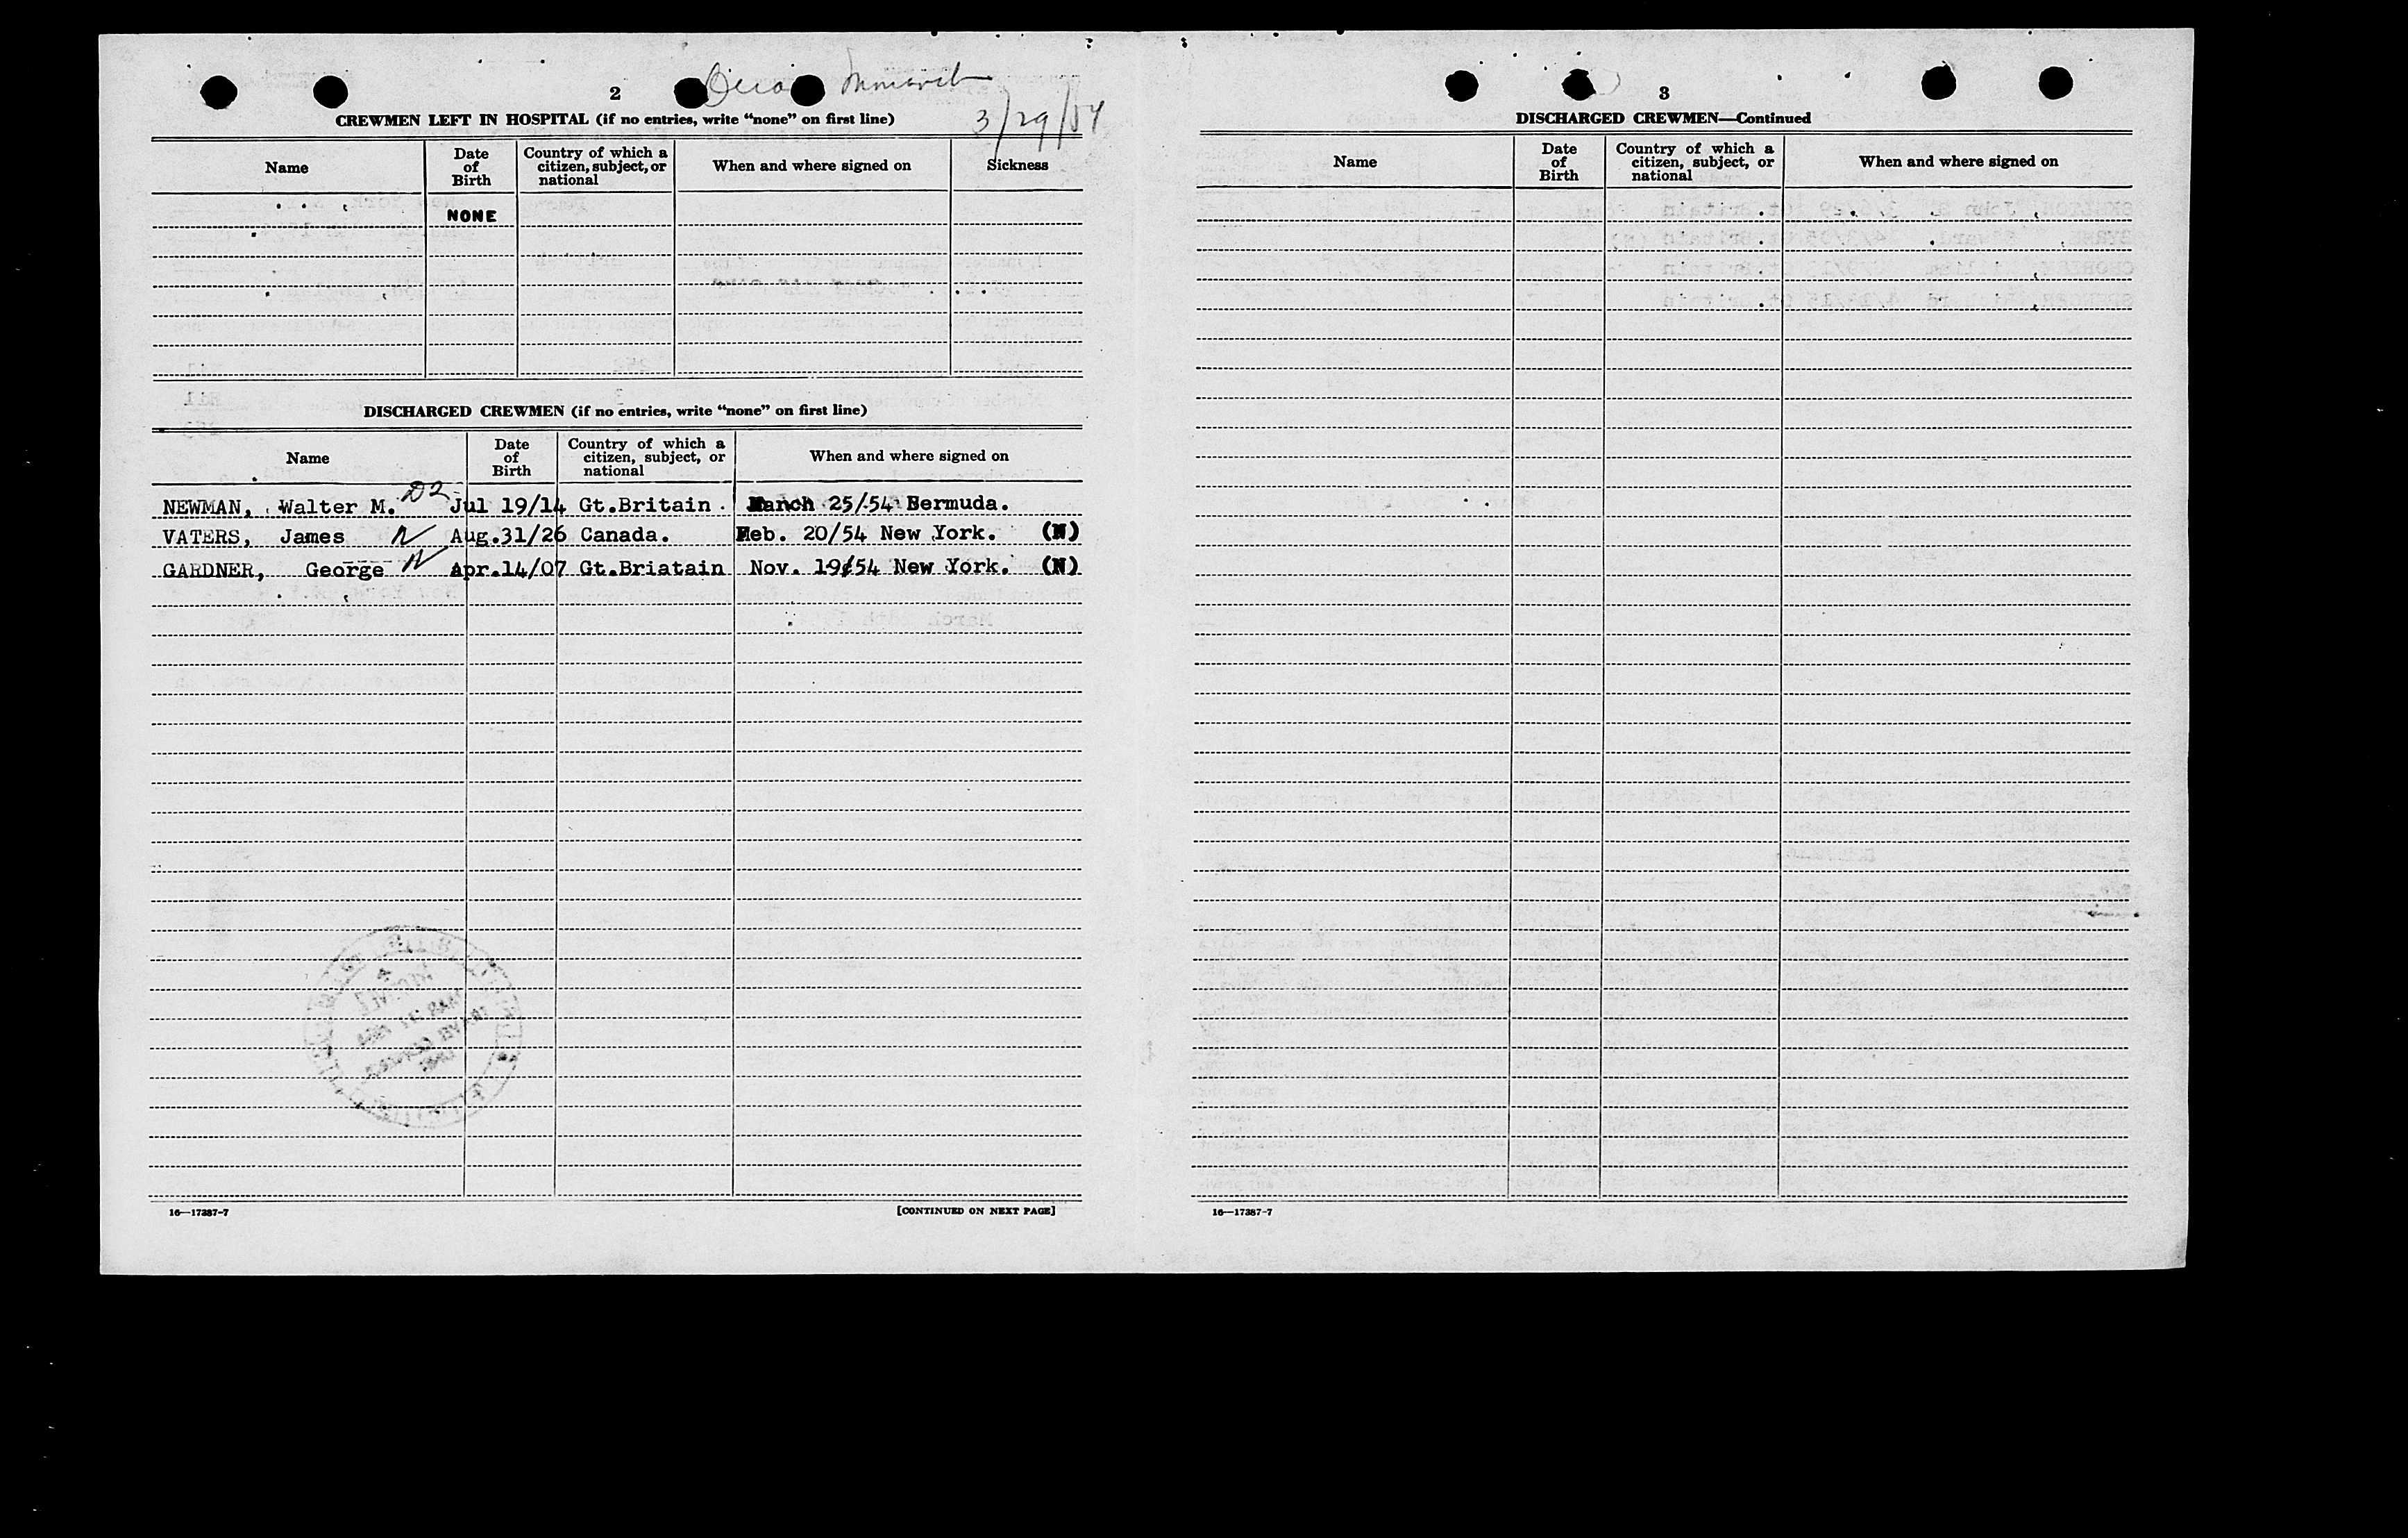 2
Monarch
3/29/54
CREWMEN LEFT IN HOSPITAL (if no entries, write “none” on first line)
Name
Date of Birth
Country of which a citizen, subject, or national
When and where signed on
Sickness
NONE
DISCHARGED CREWMEN (if no entries, write “none” on first line)
Name
Date of Birth
Country of which a citizen, subject, or national
When and where signed on
NEWMAN, Walter M. D2 Jul 19/14 Gt.Britain. March 25/54 Bermuda.
VATERS, James N Aug.31/26 Canada. Feb. 20/54 New York. (N)
GARDNER, George N Apr.14/07 Gt.Briatain Nov. 19/54 New York. (N)
16—17387-7
[CONTINUED ON NEXT PAGE]
3
DISCHARGED CREWMEN—Continued
Name
Date of Birth
Country of which a citizen, subject, or national
When and where signed on
16—17387-7